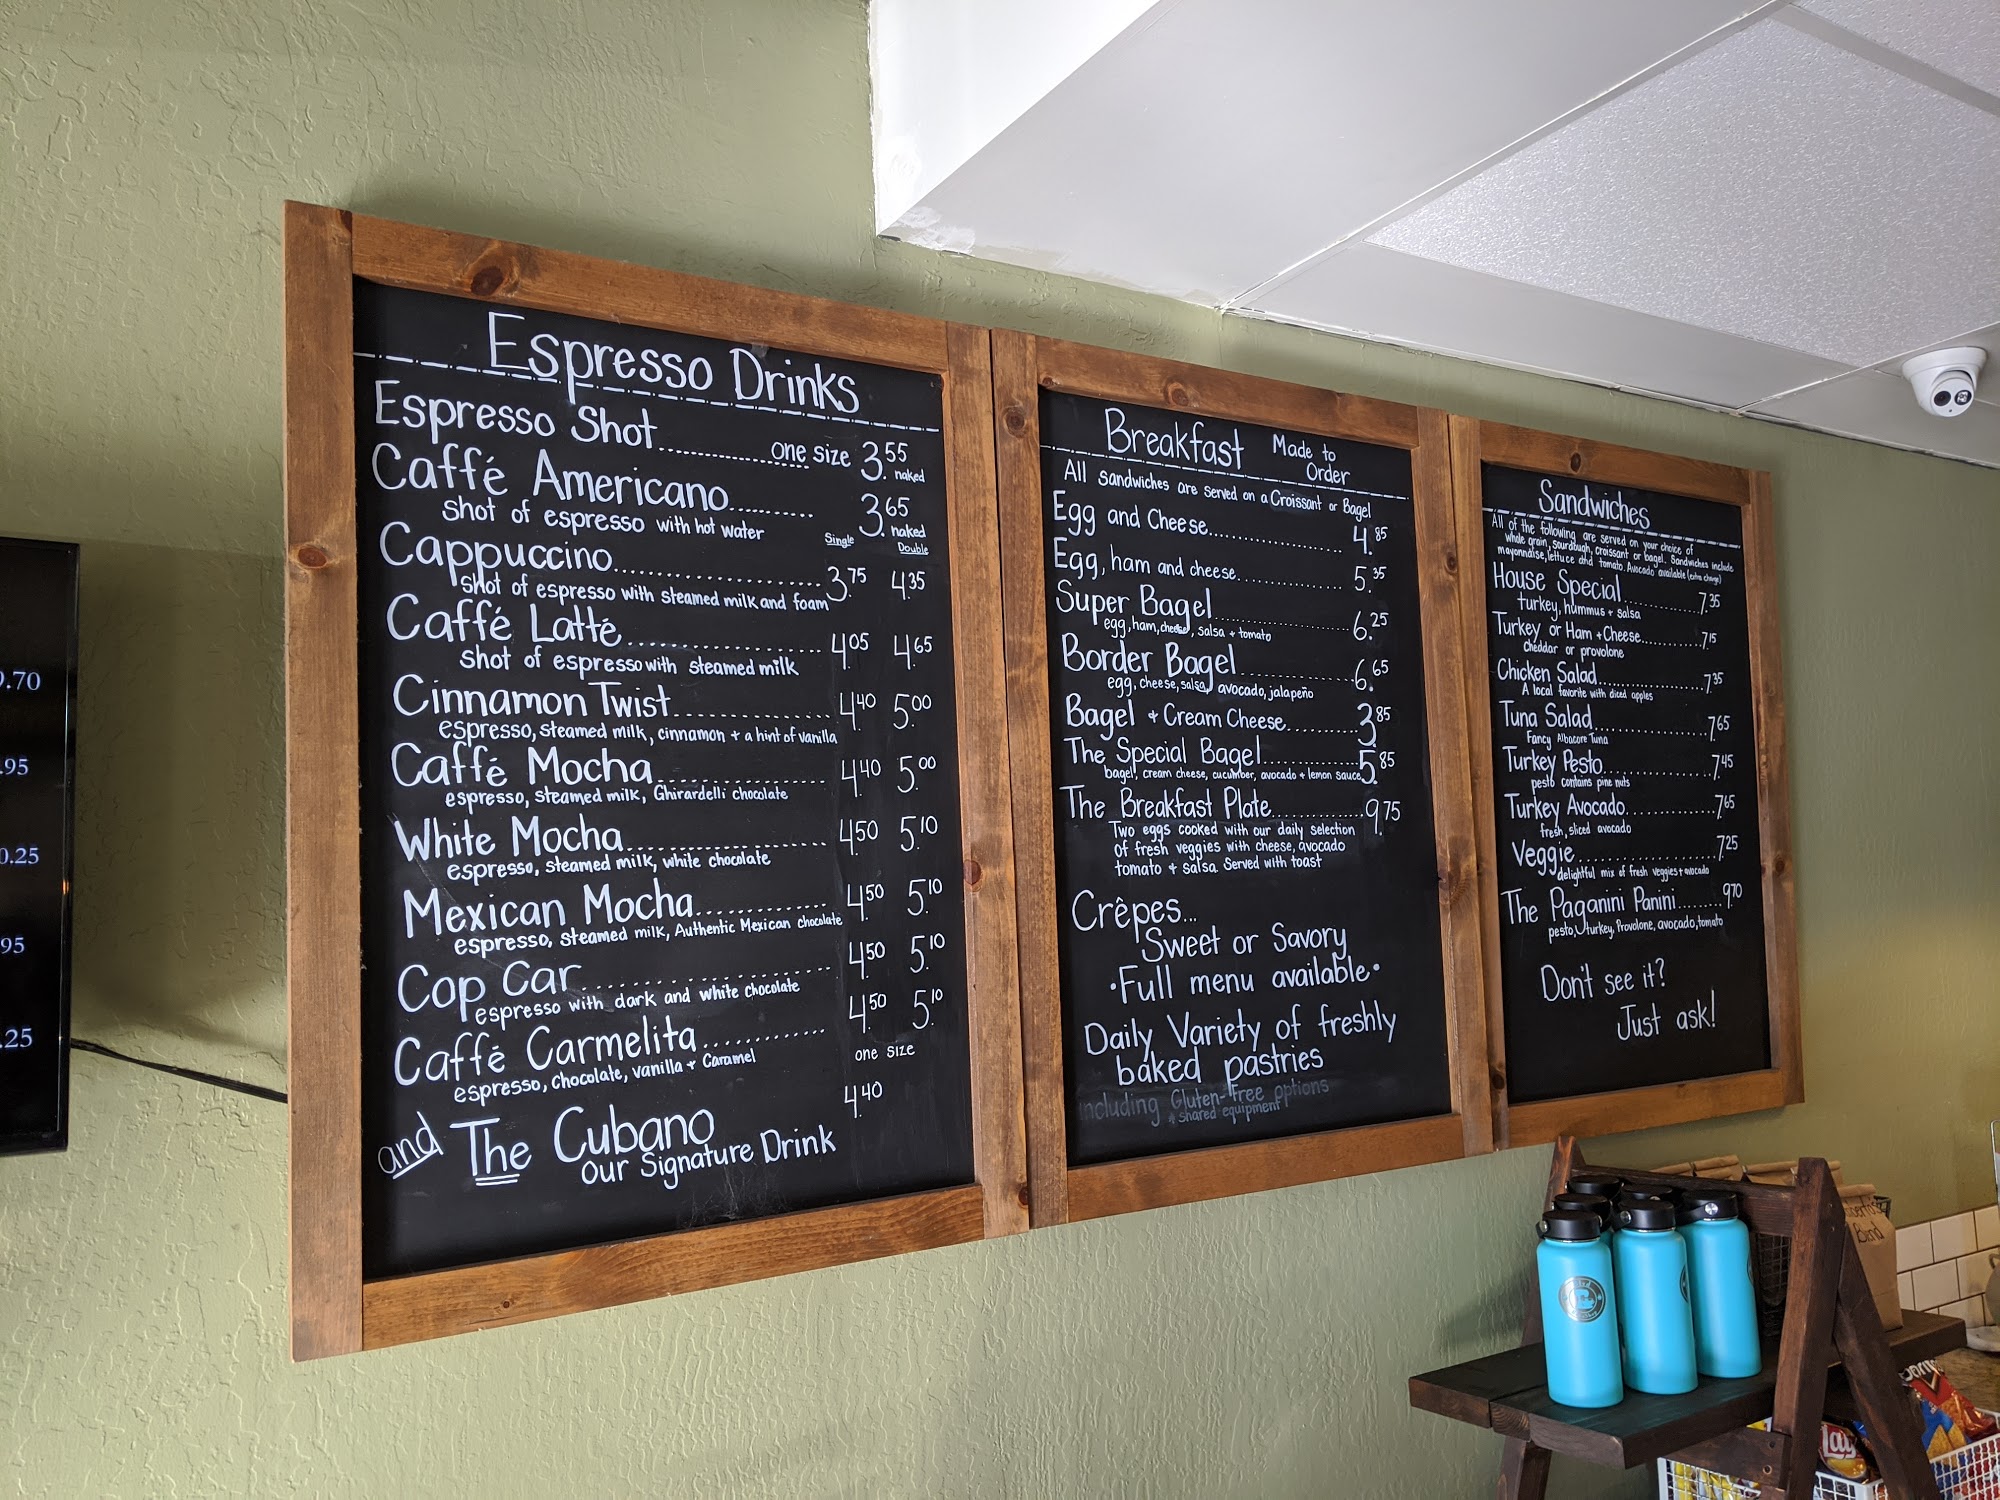 Espresso Drinks
Espresso Shot one size 3.55 naked
Caffé Americano 3.65 naked
shot of espresso with hot water
Single Double
Cappuccino 3.75 4.35
shot of espresso with steamed milk and foam
Caffé Latté 4.05 4.65
shot of espresso with steamed milk
Cinnamon Twist 4.40 5.00
espresso, steamed milk, cinnamon + a hint of vanilla
Caffé Mocha 4.40 5.00
espresso, steamed milk, Ghirardelli chocolate
White Mocha 4.50 5.10
espresso, steamed milk, white chocolate
Mexican Mocha 4.50 5.10
espresso, steamed milk, Authentic Mexican chocolate
Cop Car 4.50 5.10
espresso with dark and white chocolate
Caffé Carmelita 4.50 5.10
espresso, chocolate, vanilla + Caramel
one size
and The Cubano 4.40
our Signature Drink
Breakfast Made to
Order
All sandwiches are served on a Croissant or Bagel
Egg and Cheese 4.85
Egg, ham and cheese 5.35
Super Bagel 6.25
egg, ham, cheese, salsa + tomato
Border Bagel 6.65
egg, cheese, salsa, avocado, jalapeño
Bagel + Cream Cheese 3.85
The Special Bagel 5.85
bagel, cream cheese, cucumber, avocado + lemon sauce
The Breakfast Plate 9.75
Two eggs cooked with our daily selection
of fresh veggies with cheese, avocado
tomato + salsa. Served with toast
Crêpes...
Sweet or Savory
•Full menu available•
Daily Variety of freshly
baked pastries
including Gluten-Free options
*shared equipment
Sandwiches
All of the following are served on your choice of
whole grain, sourdough, croissant or bagel. Sandwiches include
mayonnaise, lettuce and tomato. Avocado available (extra charge)
House Special 7.35
turkey, hummus + salsa
Turkey or Ham + Cheese 7.15
cheddar or provolone
Chicken Salad 7.35
A local favorite with diced apples
Tuna Salad 7.65
Fancy Albacore Tuna
Turkey Pesto 7.45
pesto contains pine nuts
Turkey Avocado 7.65
fresh, sliced avocado
Veggie 7.25
delightful mix of fresh veggies + avocado
The Paganini Panini 9.70
pesto, turkey, Provolone, avocado, tomato
Don't see it?
Just ask!
.70
.95
0.25
95
.25
Blend
Lay's